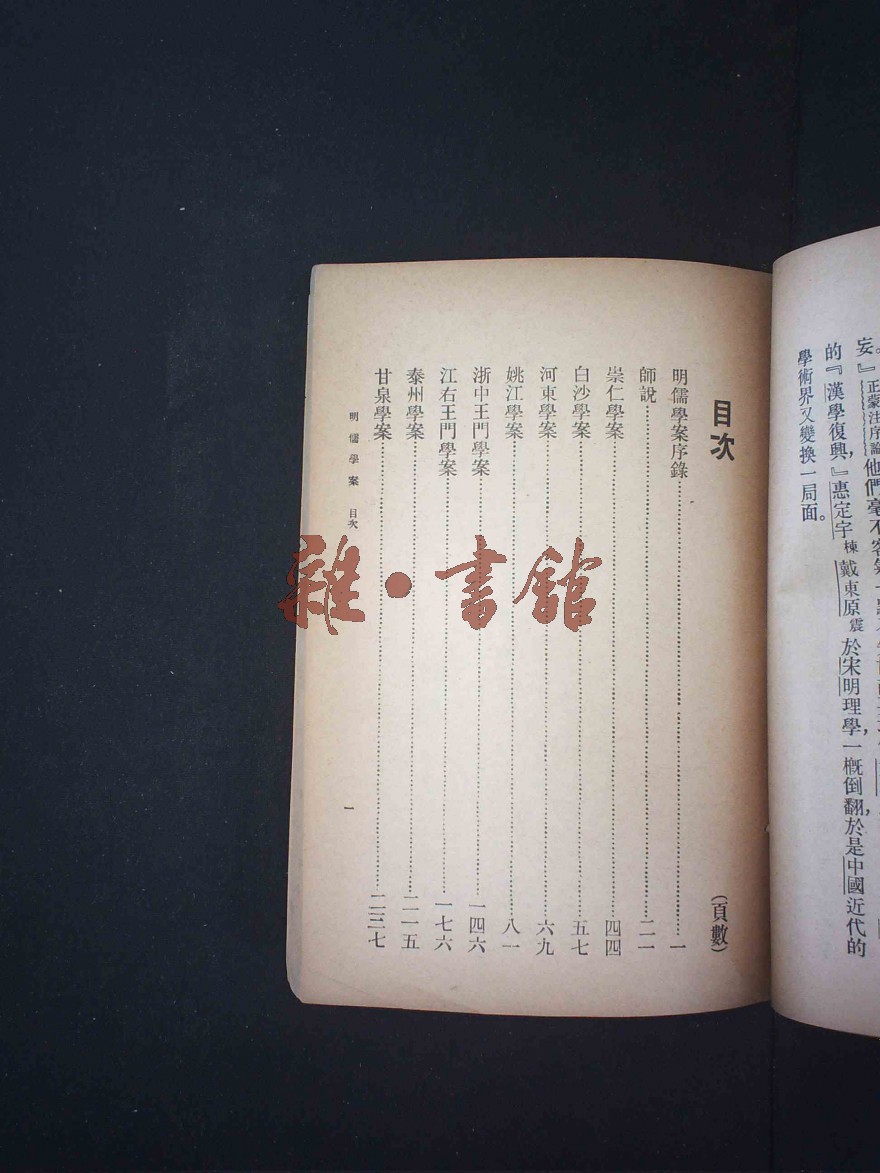 妄。』正蒙注序論他們毫不客
的『漢學復興，』惠定宇棟戴東原震於宋明理學一概倒翻，於是中國近代的
學術界又變換一局面。
目次
（頁數）
明儒學案序錄……一
師說……二一
崇仁學案……四四
白沙學案……五七
河東學案……六九
姚江學案……八一
浙中王門學案……一四六
江右王門學案……一七六
泰州學案……二一五
甘泉學案……二三七
明儒學案 目次
一
雜·書館